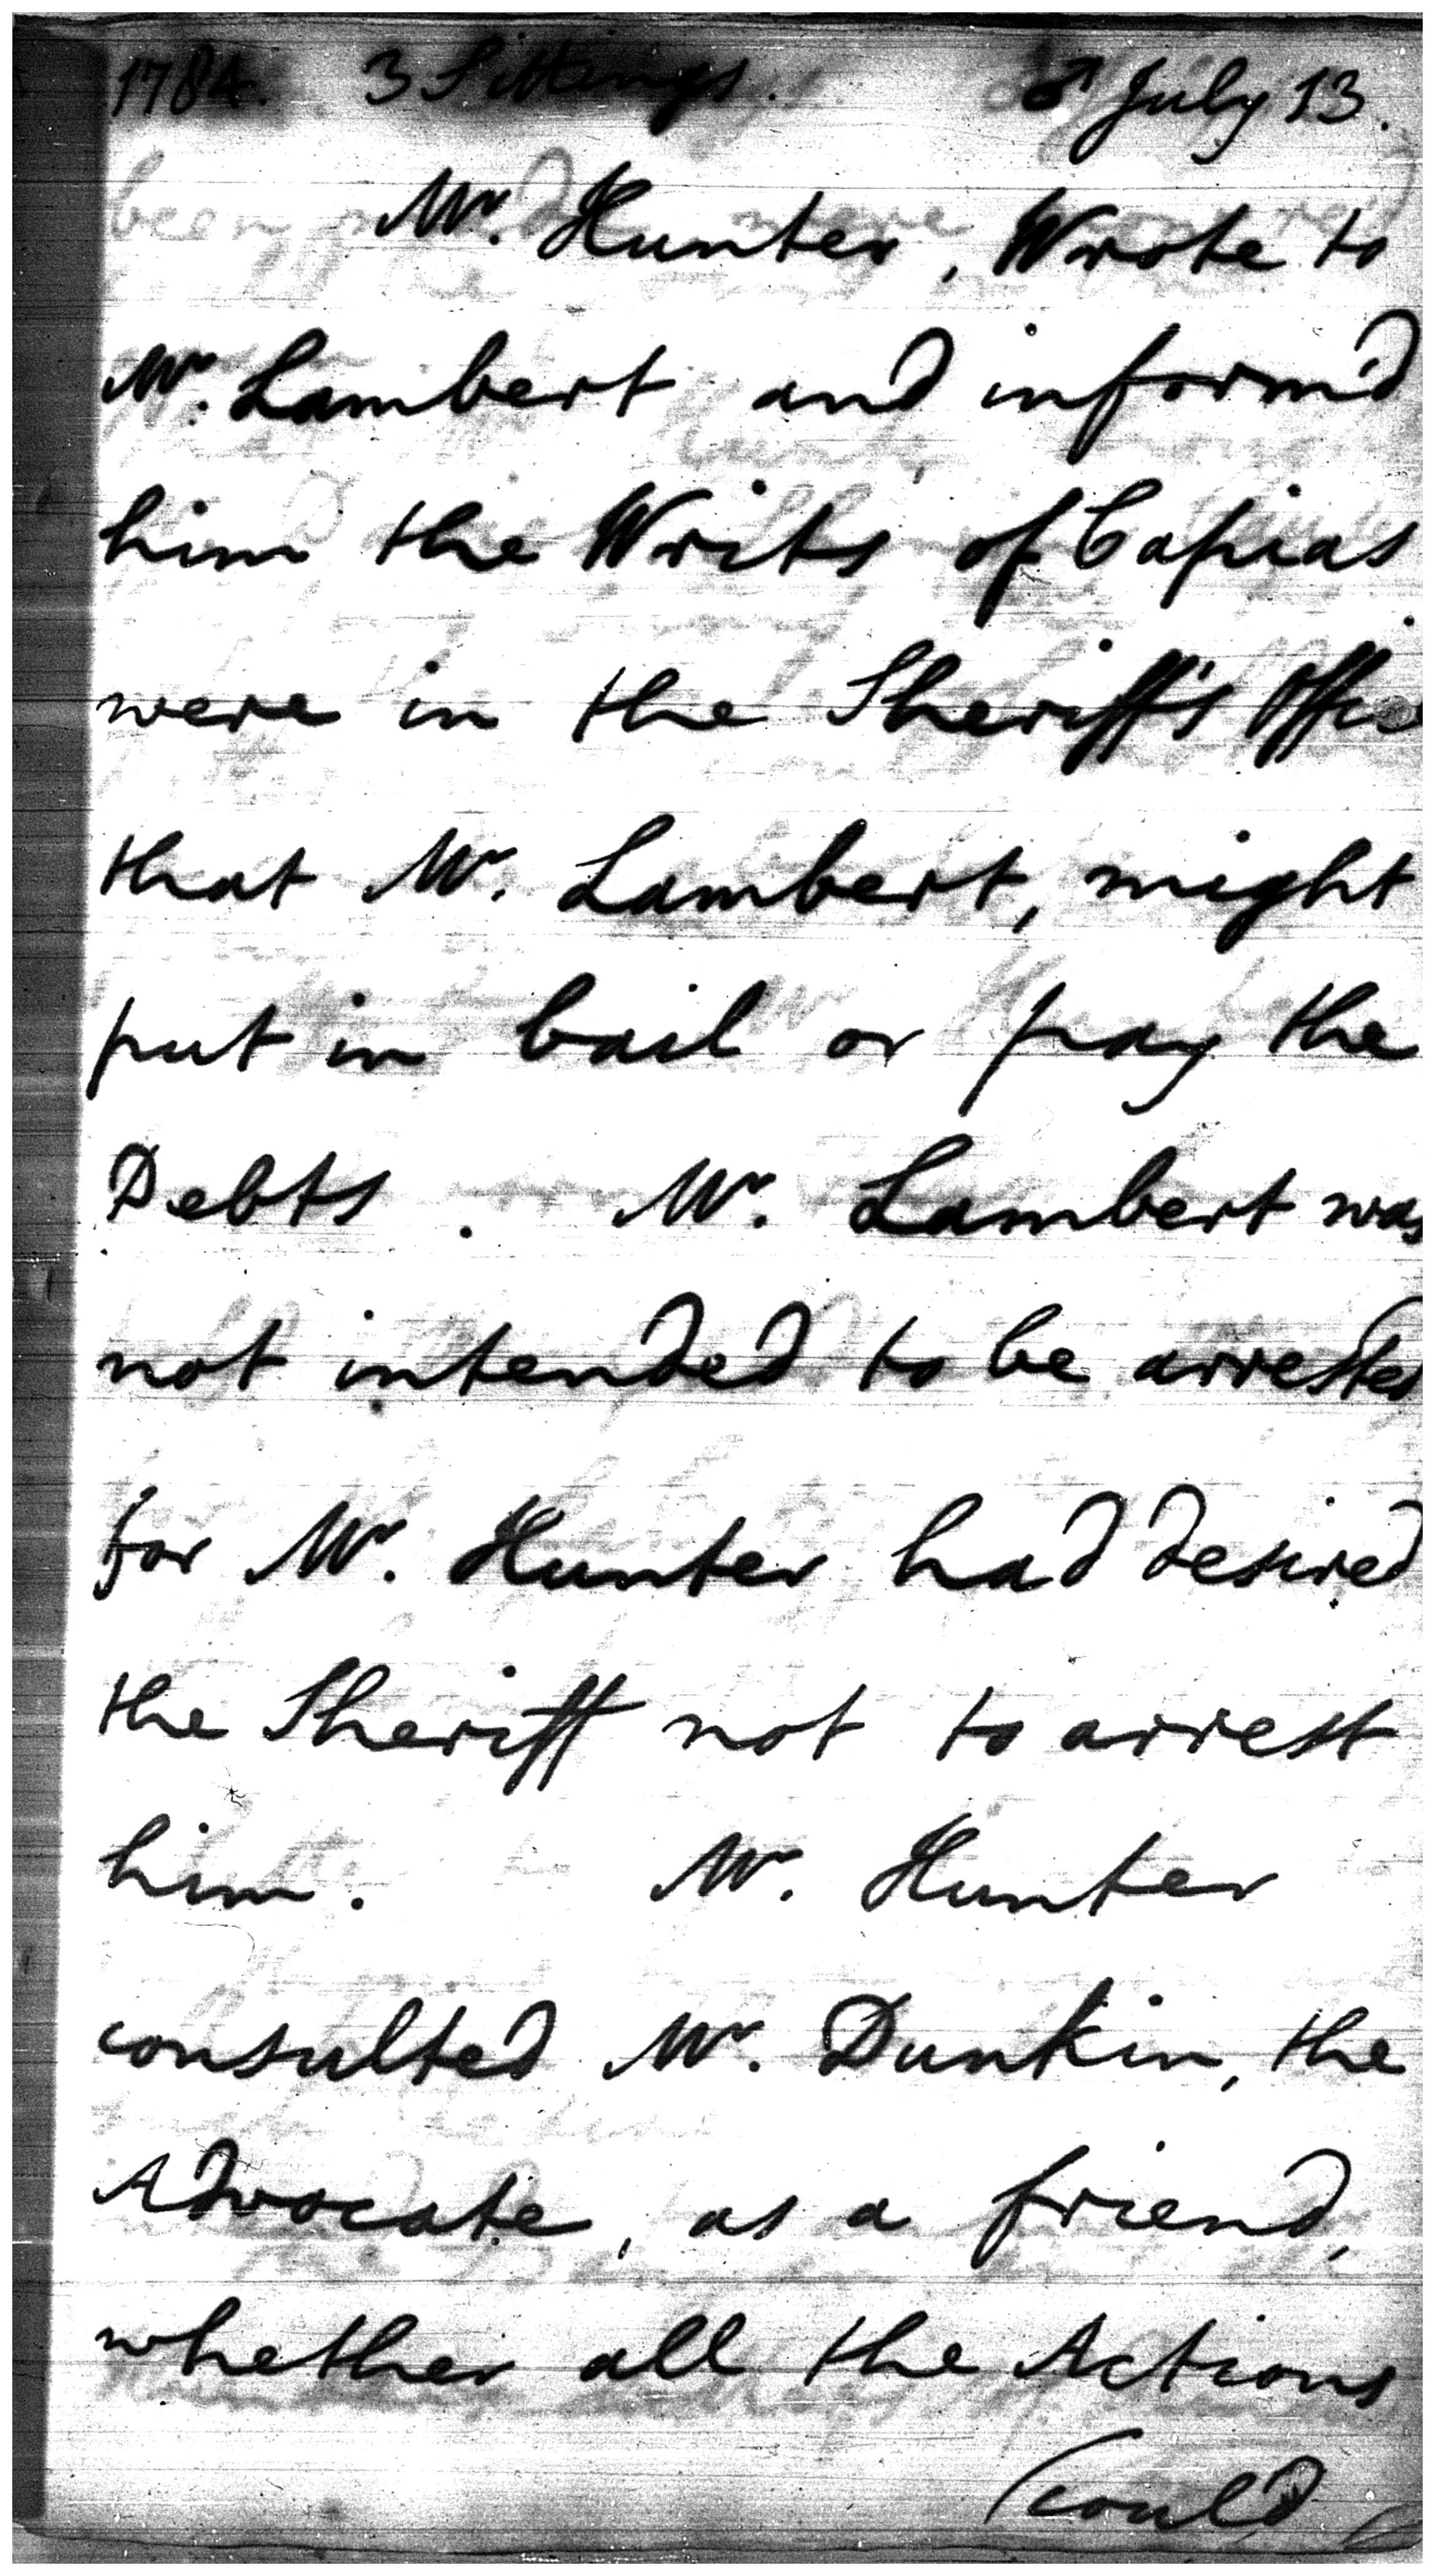 1784. 3 Sittings. ♂ July 13.
Mr. Hunter, Wrote to
Mr. Lambert and inform'd
him the Writs of Capias
were in the Sheriff's Office
that Mr. Lambert, might
put in bail or pay the
Debts. Mr. Lambert was
not intended to be arrested
for Mr. Hunter had desired
the Sheriff not to arrest
him. Mr. Hunter
consulted Mr. Dunkin, the
Advocate, as a friend,
whether all the Actions
(could